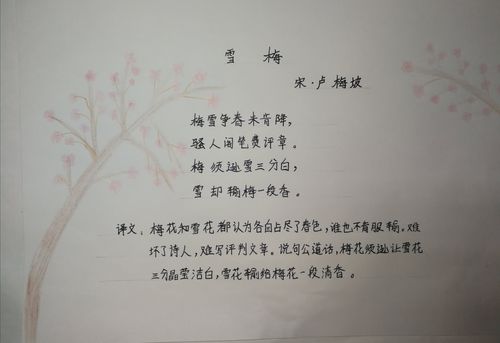 雪 梅
宋·卢梅坡
梅雪争春未肯降，
骚人阁笔费评章。
梅须逊雪三分白，
雪却输梅一段香。
译文：梅花和雪花都认为各自占尽了春色，谁也不肯服输。难
坏了诗人，难写评判文章。说句公道话，梅花须逊让雪花
三分晶莹洁白，雪花输给梅花一段清香。